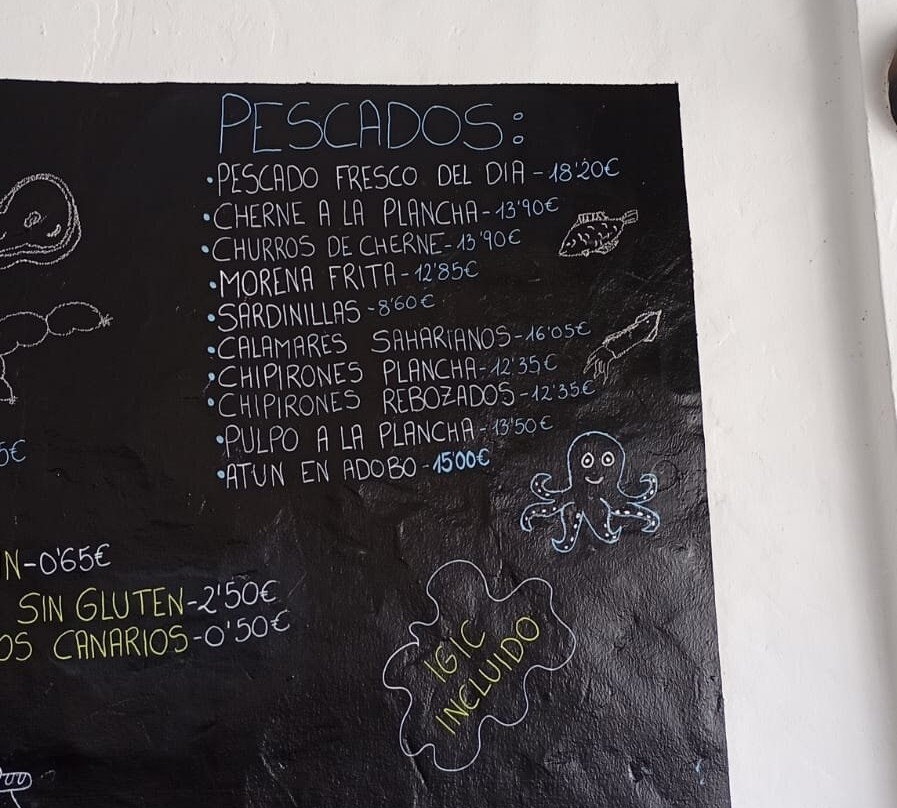 PESCADOS:
•PESCADO FRESCO DEL DIA-18'20€
•CHERNE A LA PLANCHA-13'90€
•CHURROS DE CHERNE-13'90€
•MORENA FRITA-12'85€
•SARDINILLAS-8'60€
•CALAMARES SAHARIANOS-16'05€
•CHIPIRONES PLANCHA-12'35€
•CHIPIRONES REBOZADOS-12'35€
•PULPO A LA PLANCHA-13'50€
•ATUN EN ADOBO-15'00€
5€
N-0'65€
SIN GLUTEN-2'50€
OS CANARIOS-0'50€
IGIC
INCLUIDO